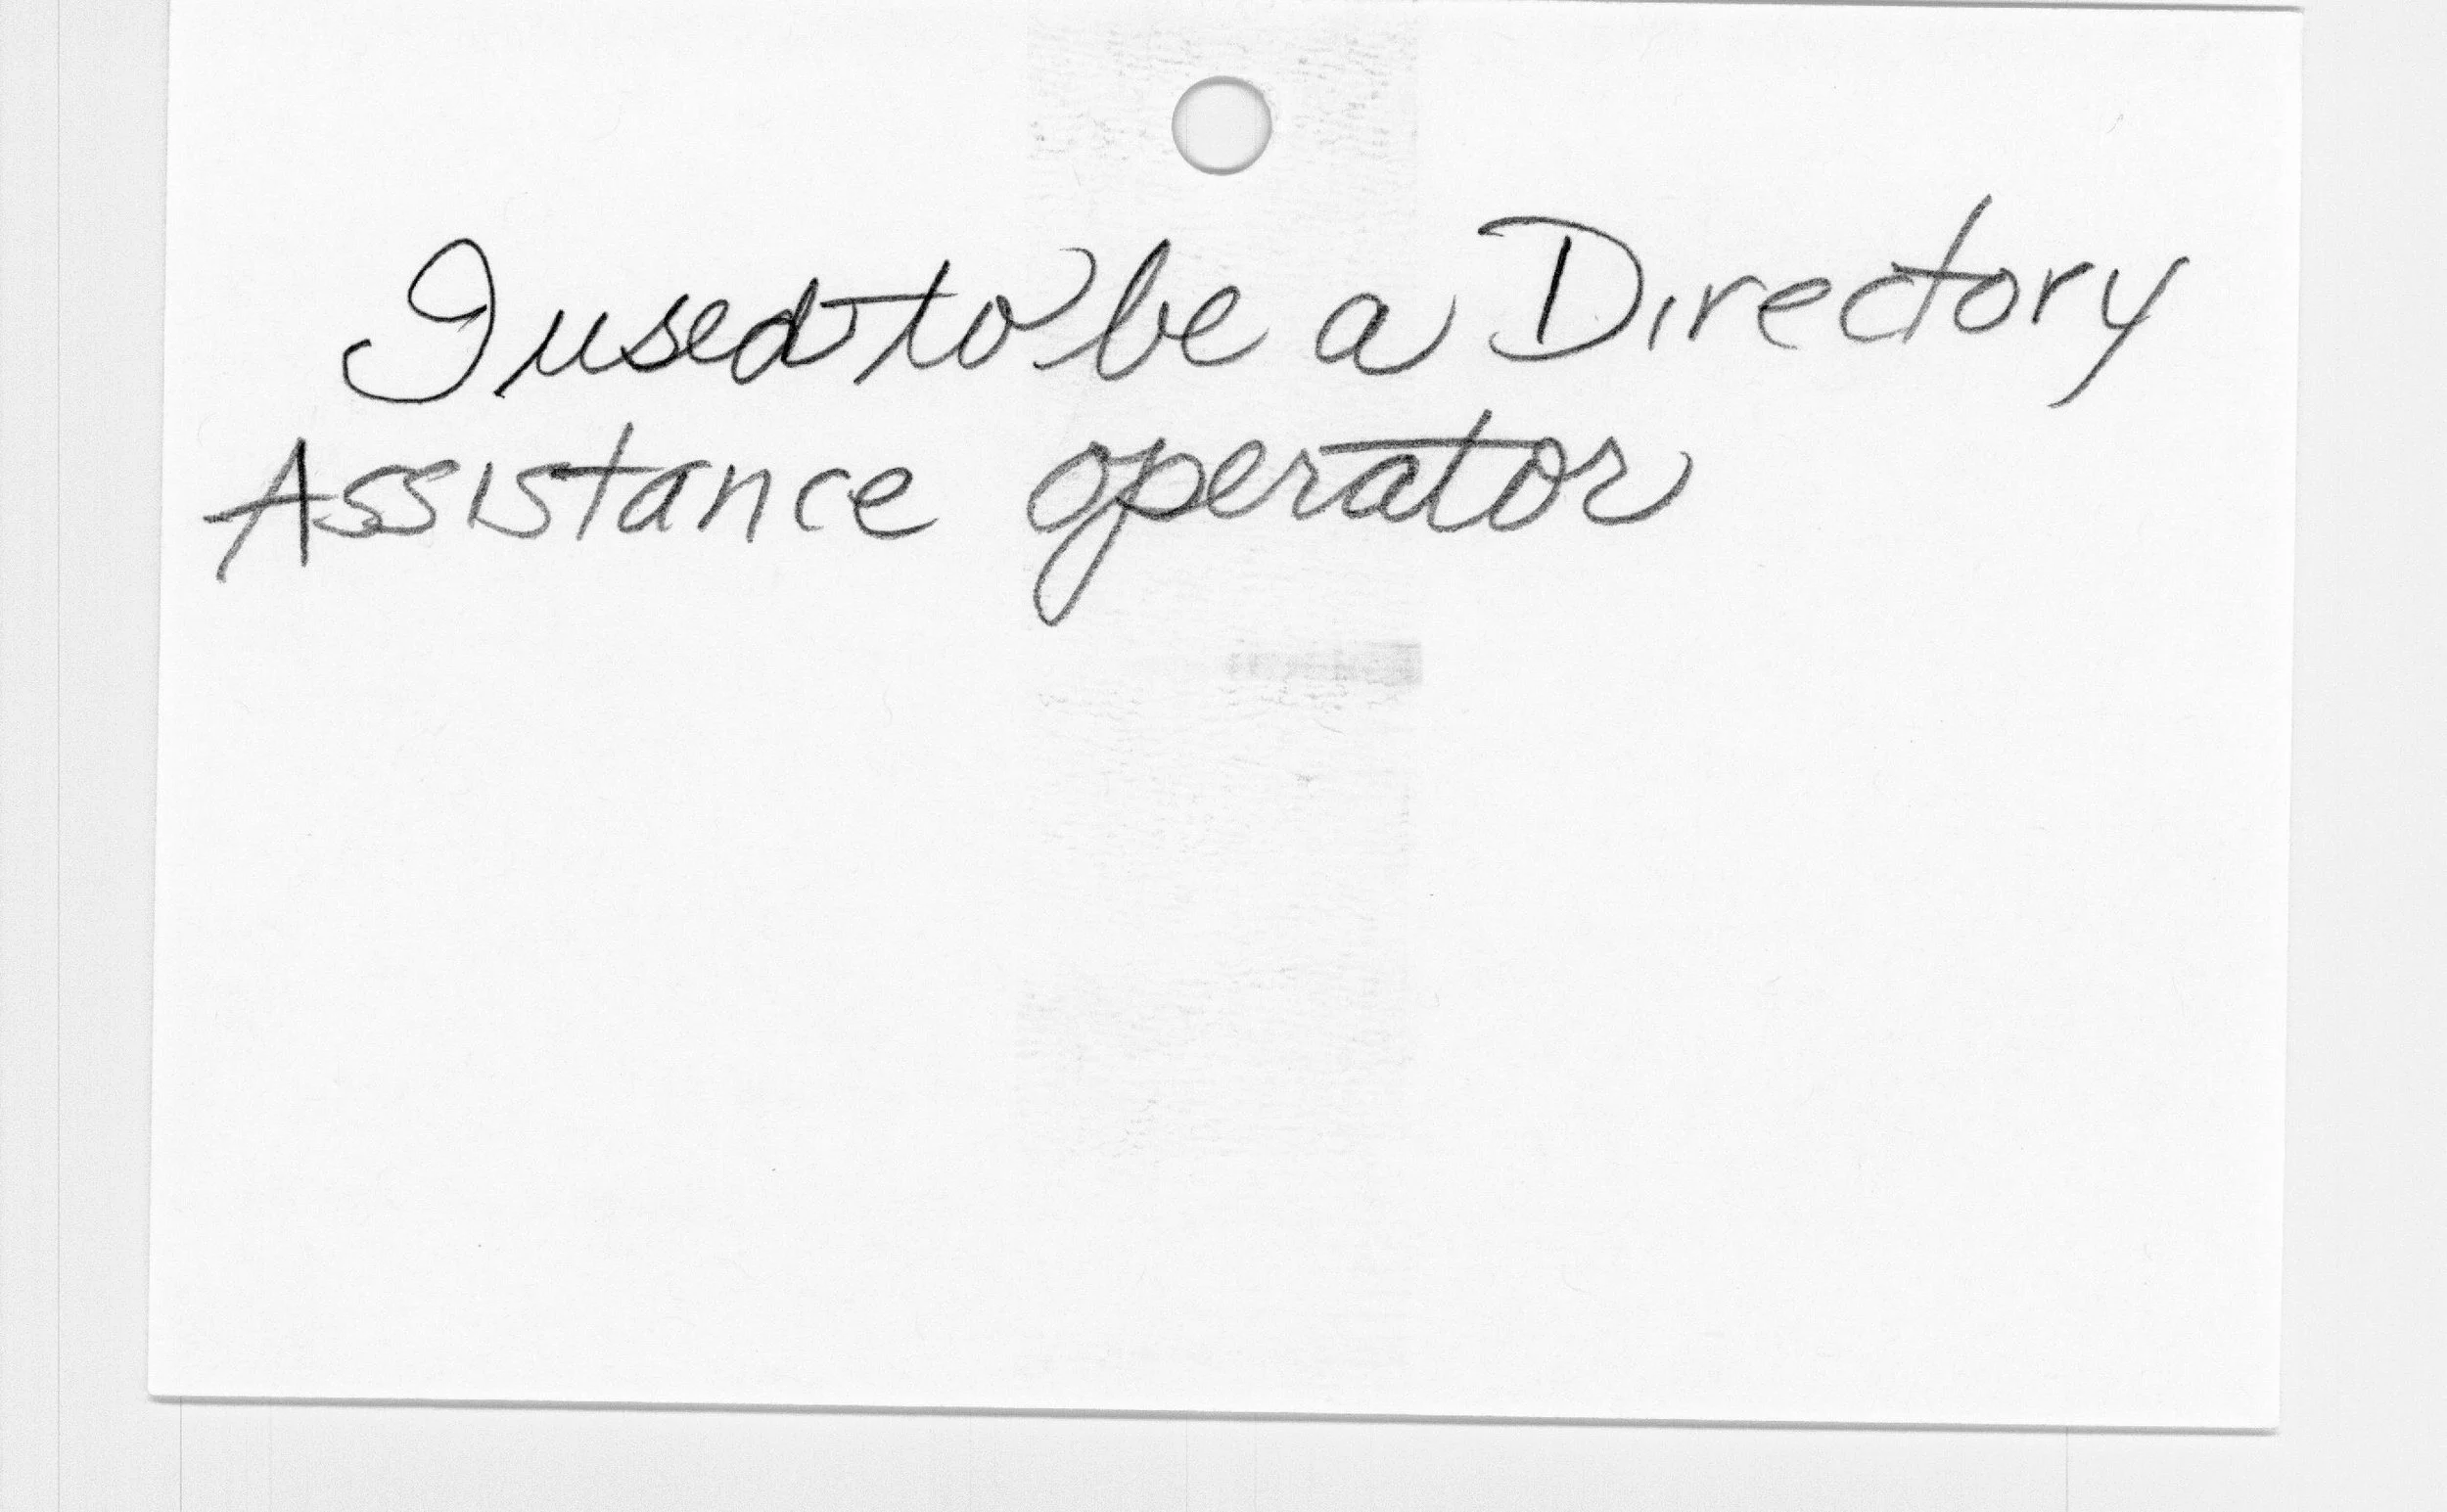 I used to be a Directory
Assistance operator